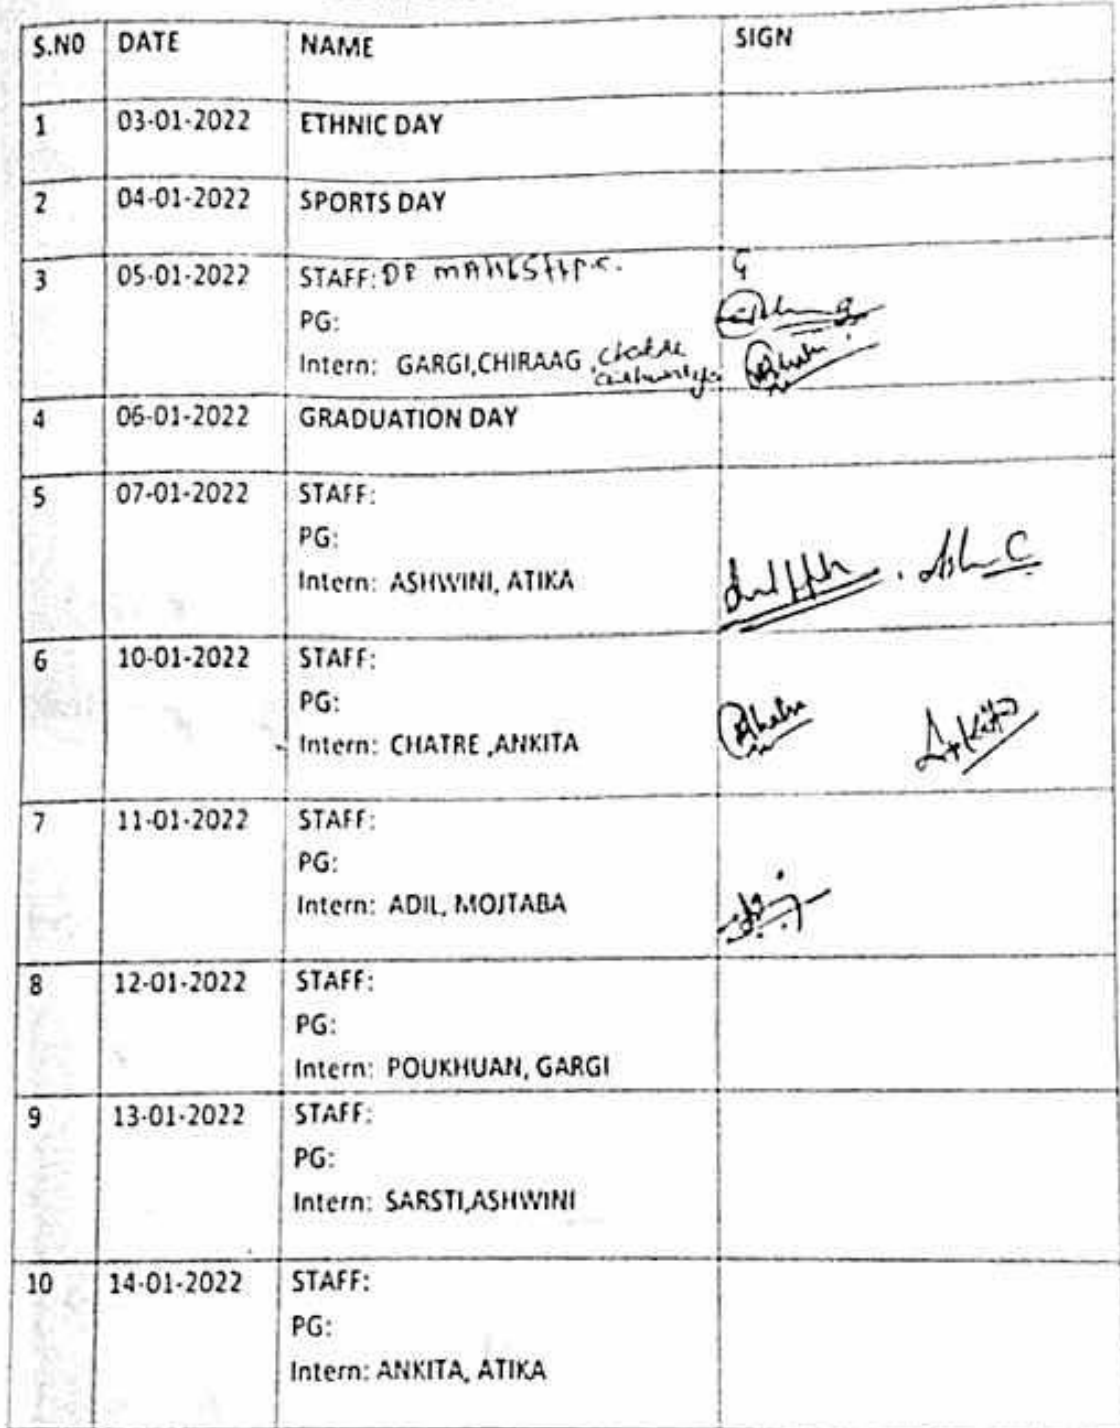 S.NO DATE NAME SIGN
1 03-01-2022 ETHNIC DAY
2 04-01-2022 SPORTS DAY
3 05-01-2022 STAFF: DR MAHESH P.C.
PG:
Intern: GARGI,CHIRAAG ,Chatre
4 06-01-2022 GRADUATION DAY
5 07-01-2022 STAFF:
PG:
Intern: ASHWINI, ATIKA
6 10-01-2022 STAFF:
PG:
Intern: CHATRE ,ANKITA Ankita
7 11-01-2022 STAFF:
PG:
Intern: ADIL, MOJTABA
8 12-01-2022 STAFF:
PG:
Intern: POUKHUAN, GARGI
9 13-01-2022 STAFF:
PG:
Intern: SARSTI,ASHWINI
10 14-01-2022 STAFF:
PG:
Intern: ANKITA, ATIKA